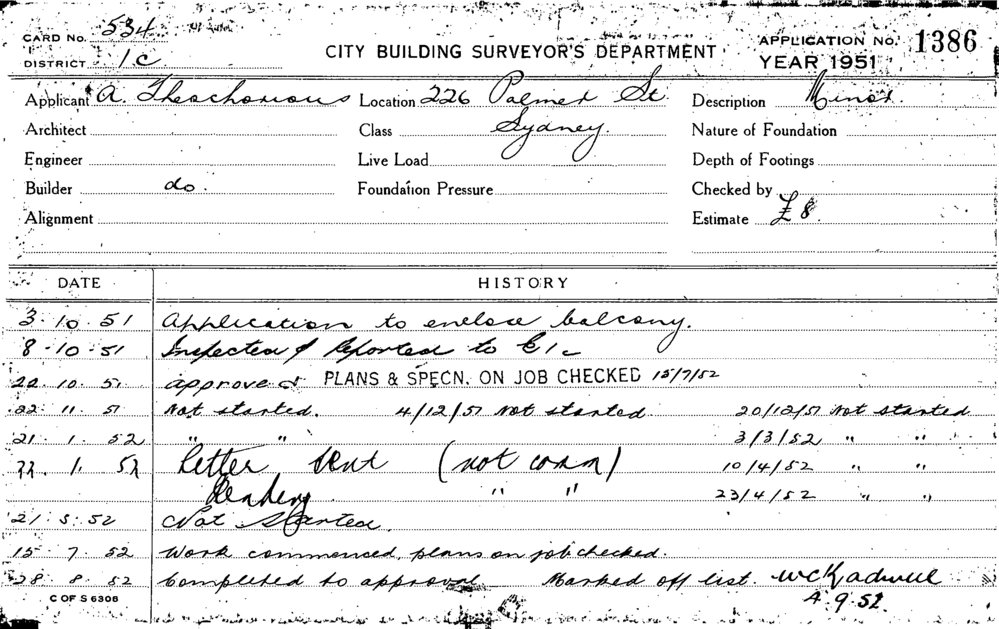 CARD No. 534
DISTRICT 1c
CITY BUILDING SURVEYOR'S DEPARTMENT
APPLICATION No. 1386
YEAR 1951
Applicant A. Theochorious Location 226 Palmer St. Description Minor.
Architect Class Sydney. Nature of Foundation
Engineer Live Load Depth of Footings
Builder do. Foundation Pressure Checked by
Alignment Estimate £8
DATE HISTORY
3.10.51 Application to enclose balcony.
8.10.51 Inspected & Reported to
22.10.51 approved PLANS & SPECN. ON JOB CHECKED 15/7/52
22.11.51 Not started. 4/12/51 Not started 20/12/51 Not started
21.1.52 " " 3/3/52 " "
22.1.52 Letter sent (not comm) 10/4/52 " "
" " 23/4/52 " "
21.5.52 Not started.
15.7.52 Work commenced, plans on job checked.
28.8.52 Completed to approval Marked off list.
4.9.52.
C OF S 6306